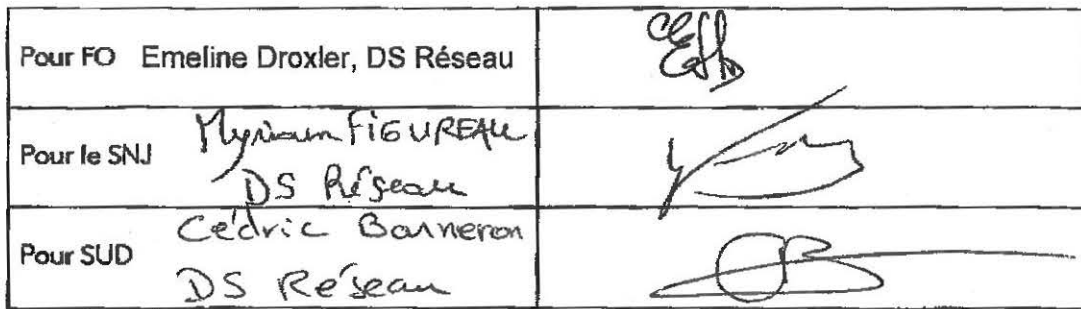 Pour FO Emeline Droxler, DS Réseau
Pour le SNJ Myriam FIGUREAU
DS Réseau
Pour SUD Cédric Bonneron
DS Réseau